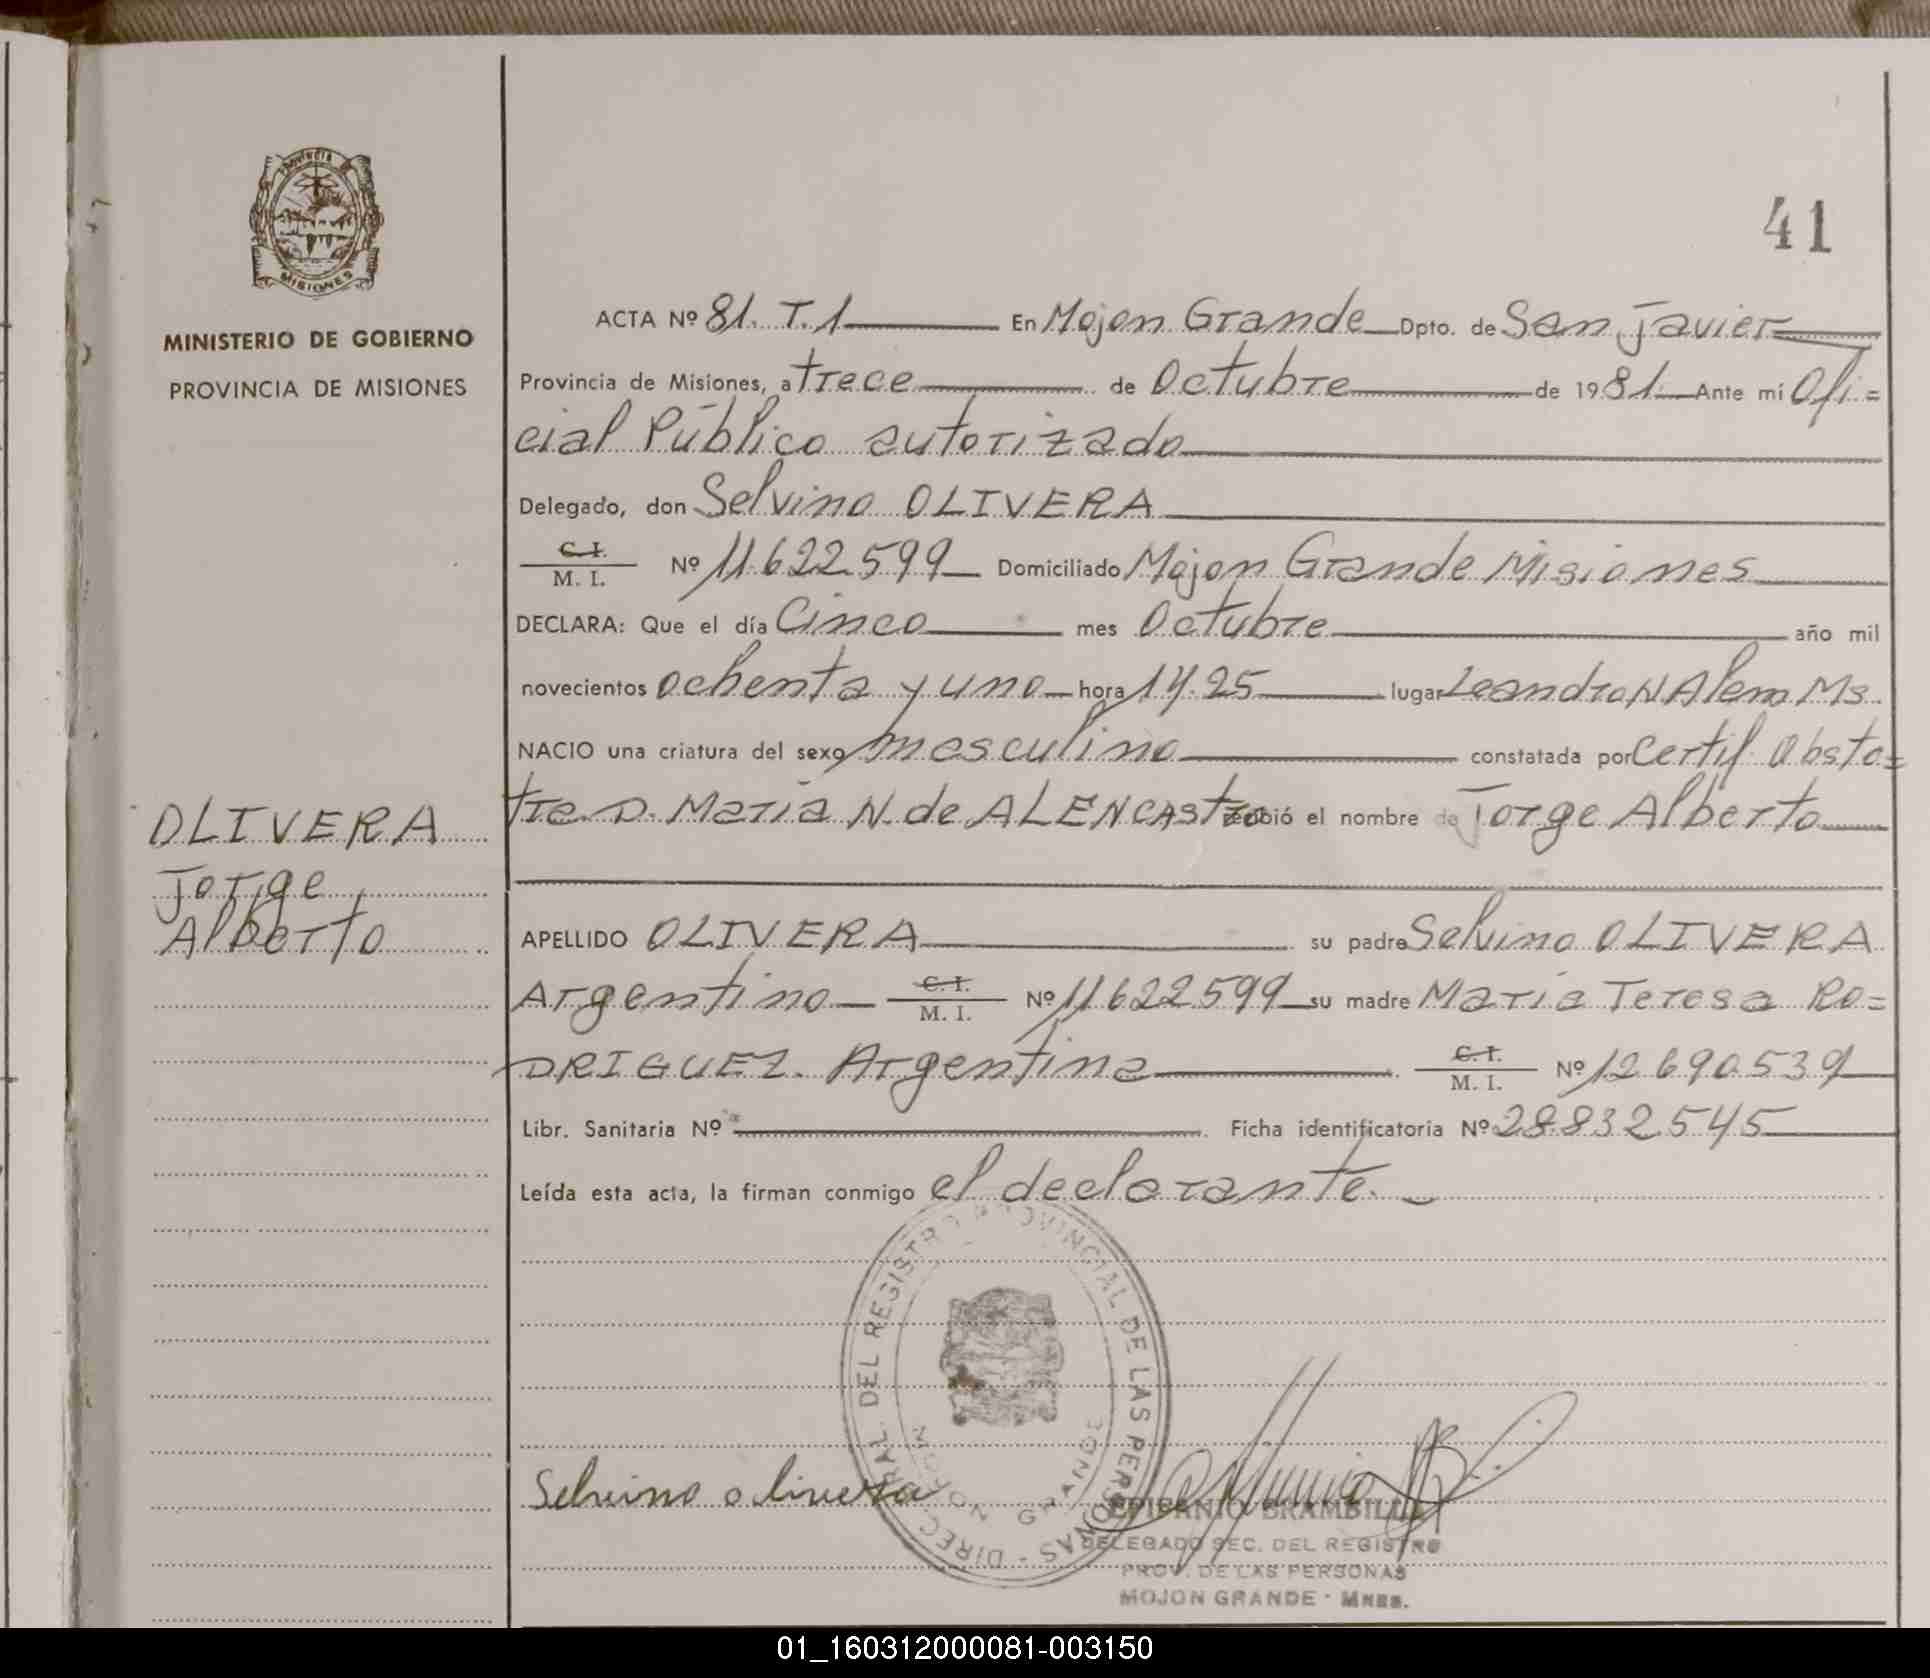 Provincia
MISIONES
MINISTERIO DE GOBIERNO
PROVINCIA DE MISIONES
OLIVERA
Jorge
Alberto
41
ACTA Nº 81. T. 1 En Mojon Grande Dpto. de San Javier
Provincia de Misiones, a trece de Octubre de 1981 Ante mí Ofi=
cial Público autorizado
Delegado, don Selvino OLIVERA
C. I.
M. I. Nº 11622599 Domiciliado Mojon Grande Misiones
DECLARA: Que el día Cinco mes Octubre año mil
novecientos ochenta y uno hora 14.25 lugar Leandro N Alem Ms.
NACIO una criatura del sexo masculino constatada por Certif. Obste=
tra. D. Maria N. de ALENCAStro recibió el nombre de Jorge Alberto
APELLIDO OLIVERA su padre Selvino OLIVERA
Argentino C. I.
M. I. Nº 11622599 su madre Maria Teresa RO=
DRIGUEZ. Argentina C. I.
M. I. Nº 12690539
Libr. Sanitaria Nº Ficha identificatoria Nº 28832545
Leída esta acta, la firman conmigo el declarante.
DIREC. GRAL. DEL REGISTRO PROVINCIAL DE LAS PERSONAS
MOJON GRANDE
Selvino olivera
EPIFANIO BRAMBILLA
DELEGADO SEC. DEL REGISTRO
PROV. DE LAS PERSONAS
MOJON GRANDE - MNES.
01_160312000081-003150